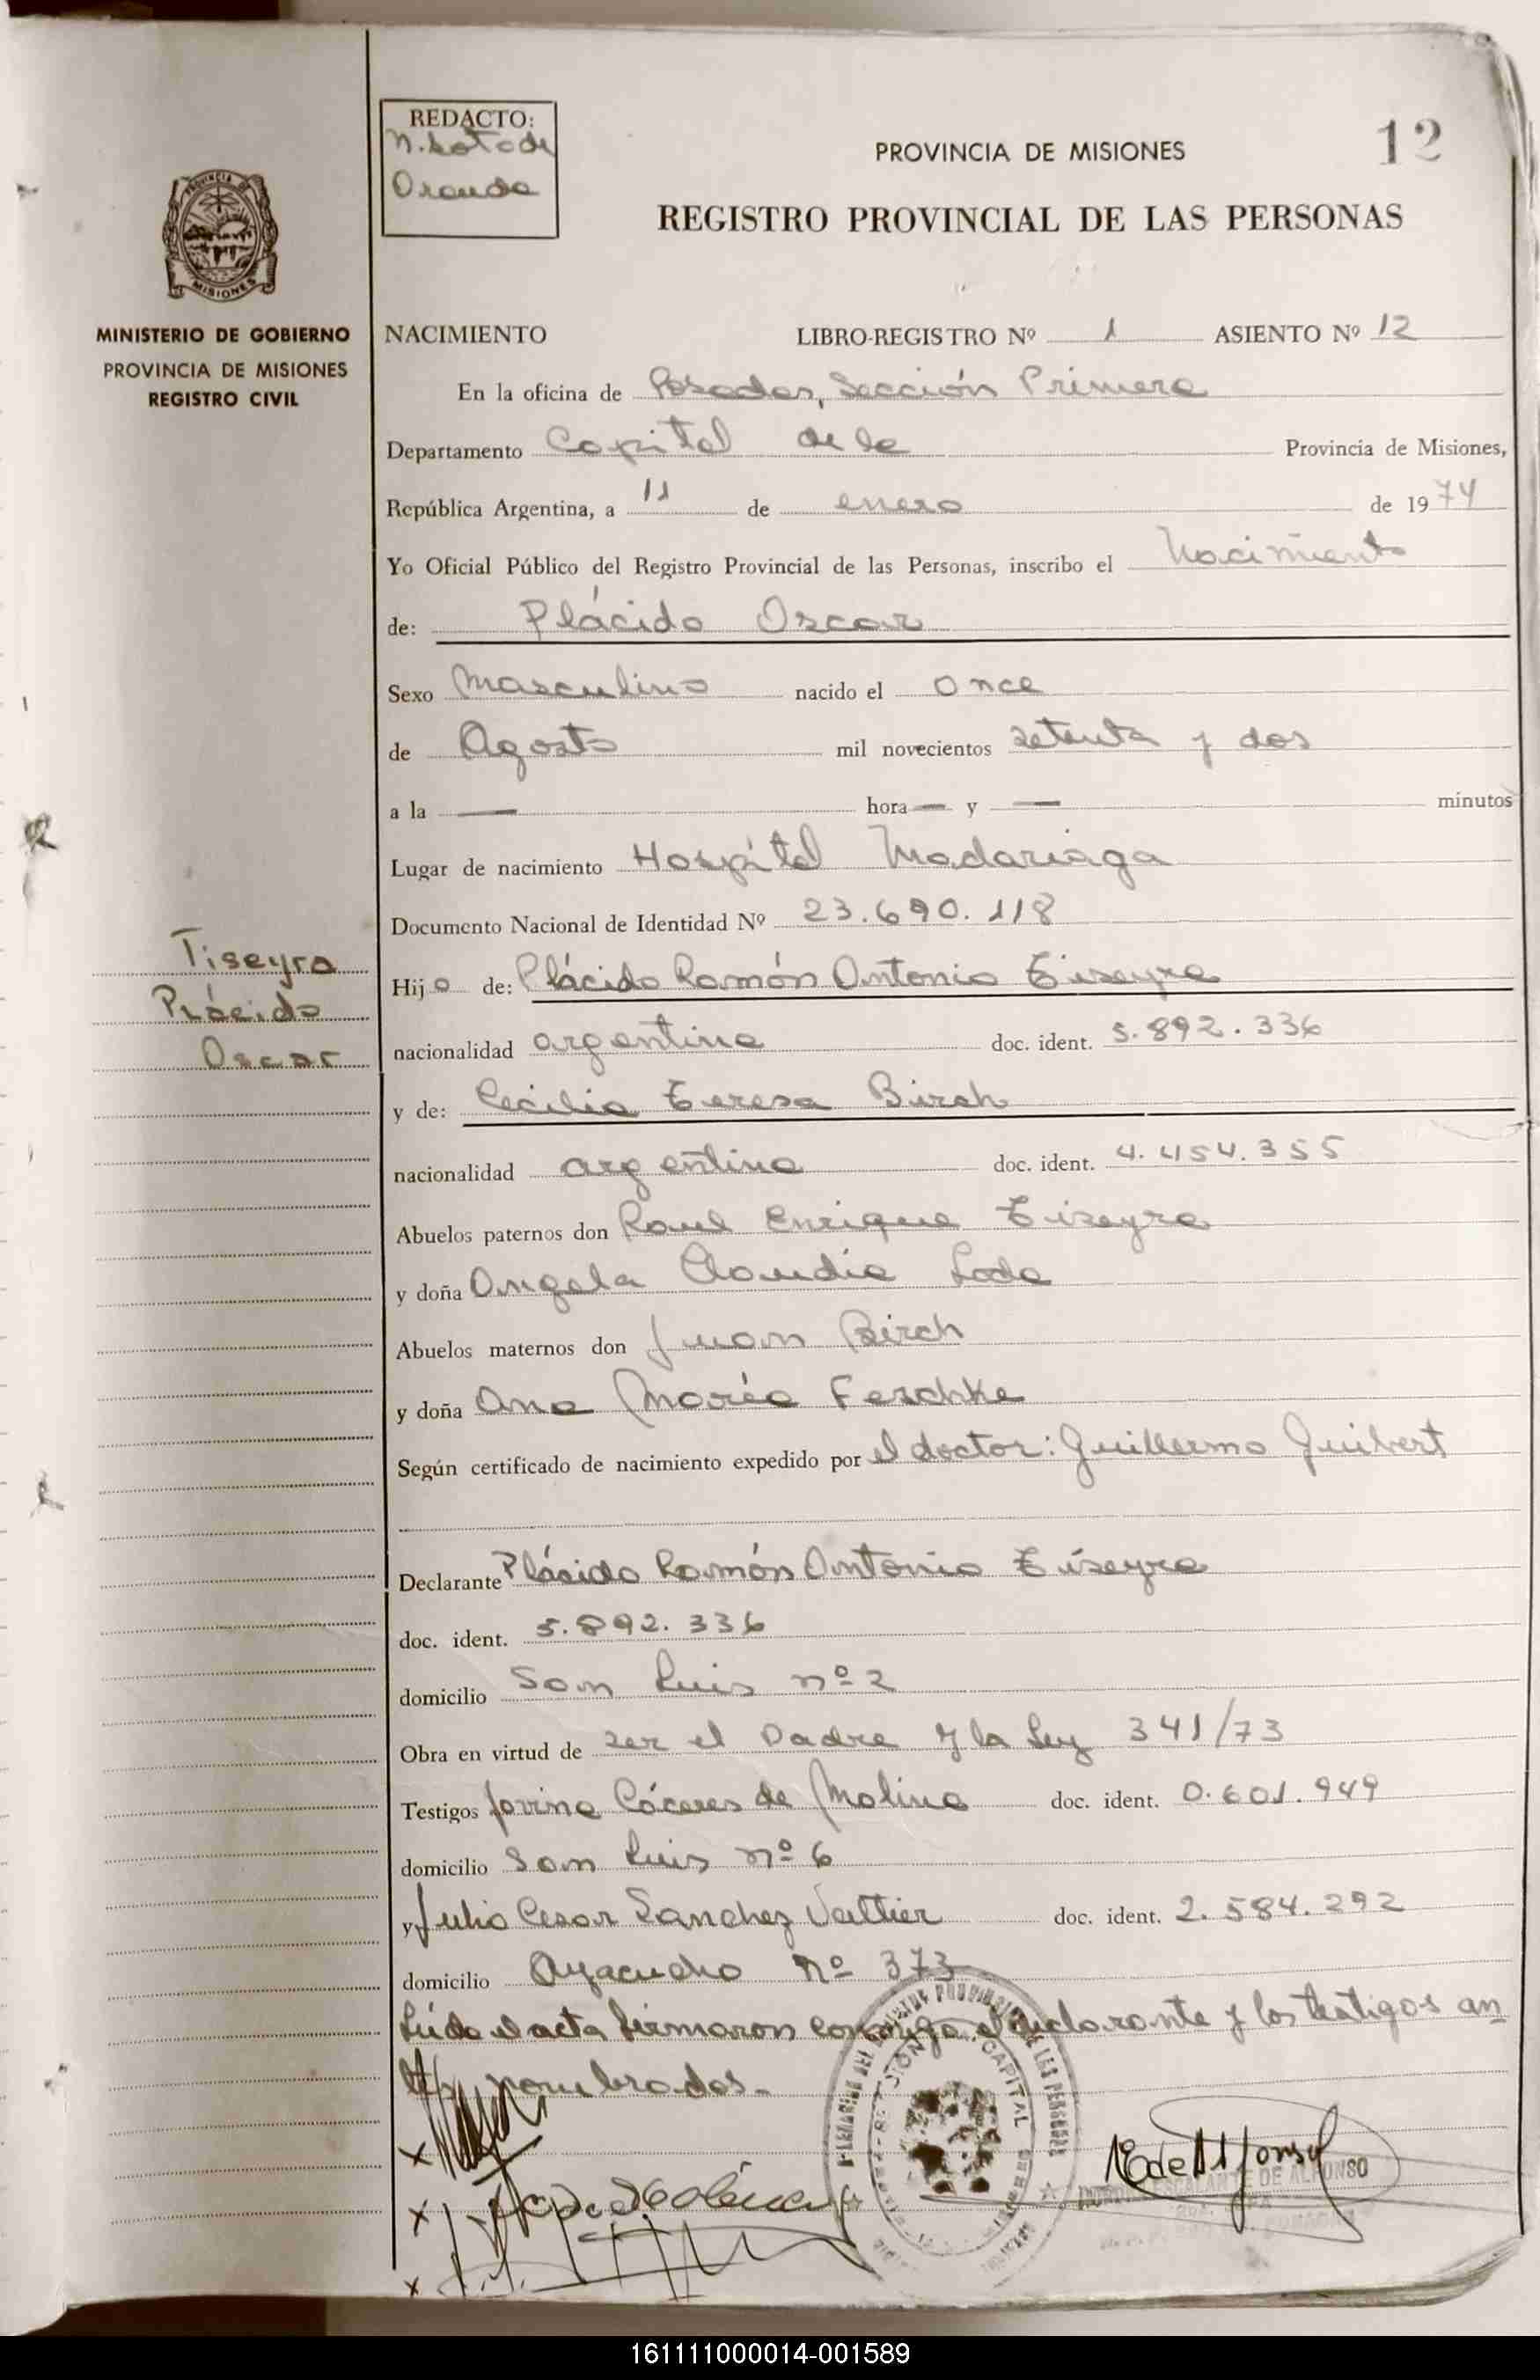 REDACTO:
N. Soto de
Oranda
12
PROVINCIA DE MISIONES
REGISTRO PROVINCIAL DE LAS PERSONAS
PROVINCIA DE
MISIONES
MINISTERIO DE GOBIERNO
PROVINCIA DE MISIONES
REGISTRO CIVIL
NACIMIENTO LIBRO-REGISTRO Nº 1 ASIENTO Nº 12
En la oficina de Posadas, Sección Primera
Departamento Capital de la Provincia de Misiones,
República Argentina, a 11 de enero de 1974
Yo Oficial Público del Registro Provincial de las Personas, inscribo el Nacimiento
de: Plácido Oscar
Sexo Masculino nacido el once
de Agosto mil novecientos setenta y dos
a la — hora — y — minutos
Lugar de nacimiento Hospital Madariaga
Documento Nacional de Identidad Nº 23.690.118
Tiseyra
Plácido
Oscar
Hijo de: Plácido Ramón Antonio Tiseyra
nacionalidad argentina doc. ident. 5.892.336
y de: Cecilia Teresa Birch
nacionalidad argentina doc. ident. 4.454.355
Abuelos paternos don Raul Enrique Tiseyra
y doña Angela Claudia Loda
Abuelos maternos don Juan Birch
y doña Ana María Feschke
Según certificado de nacimiento expedido por el doctor: Guillermo Guibert
Declarante Plácido Ramón Antonio Tiseyra
doc. ident. 5.892.336
domicilio San Luis nº 2
Obra en virtud de ser el Padre y la Ley 341/73
Testigos Jovina Cáceres de Molina doc. ident. 0.601.949
domicilio San Luis nº 6
y Julio Cesar Sanchez Vallier doc. ident. 2.584.292
domicilio Ayacucho Nº 373
Leída el acta firmaron conmigo el declarante y los testigos an
tes nombrados.-
CAPITAL
ESCALANTE DE ALFONSO
161111000014-001589